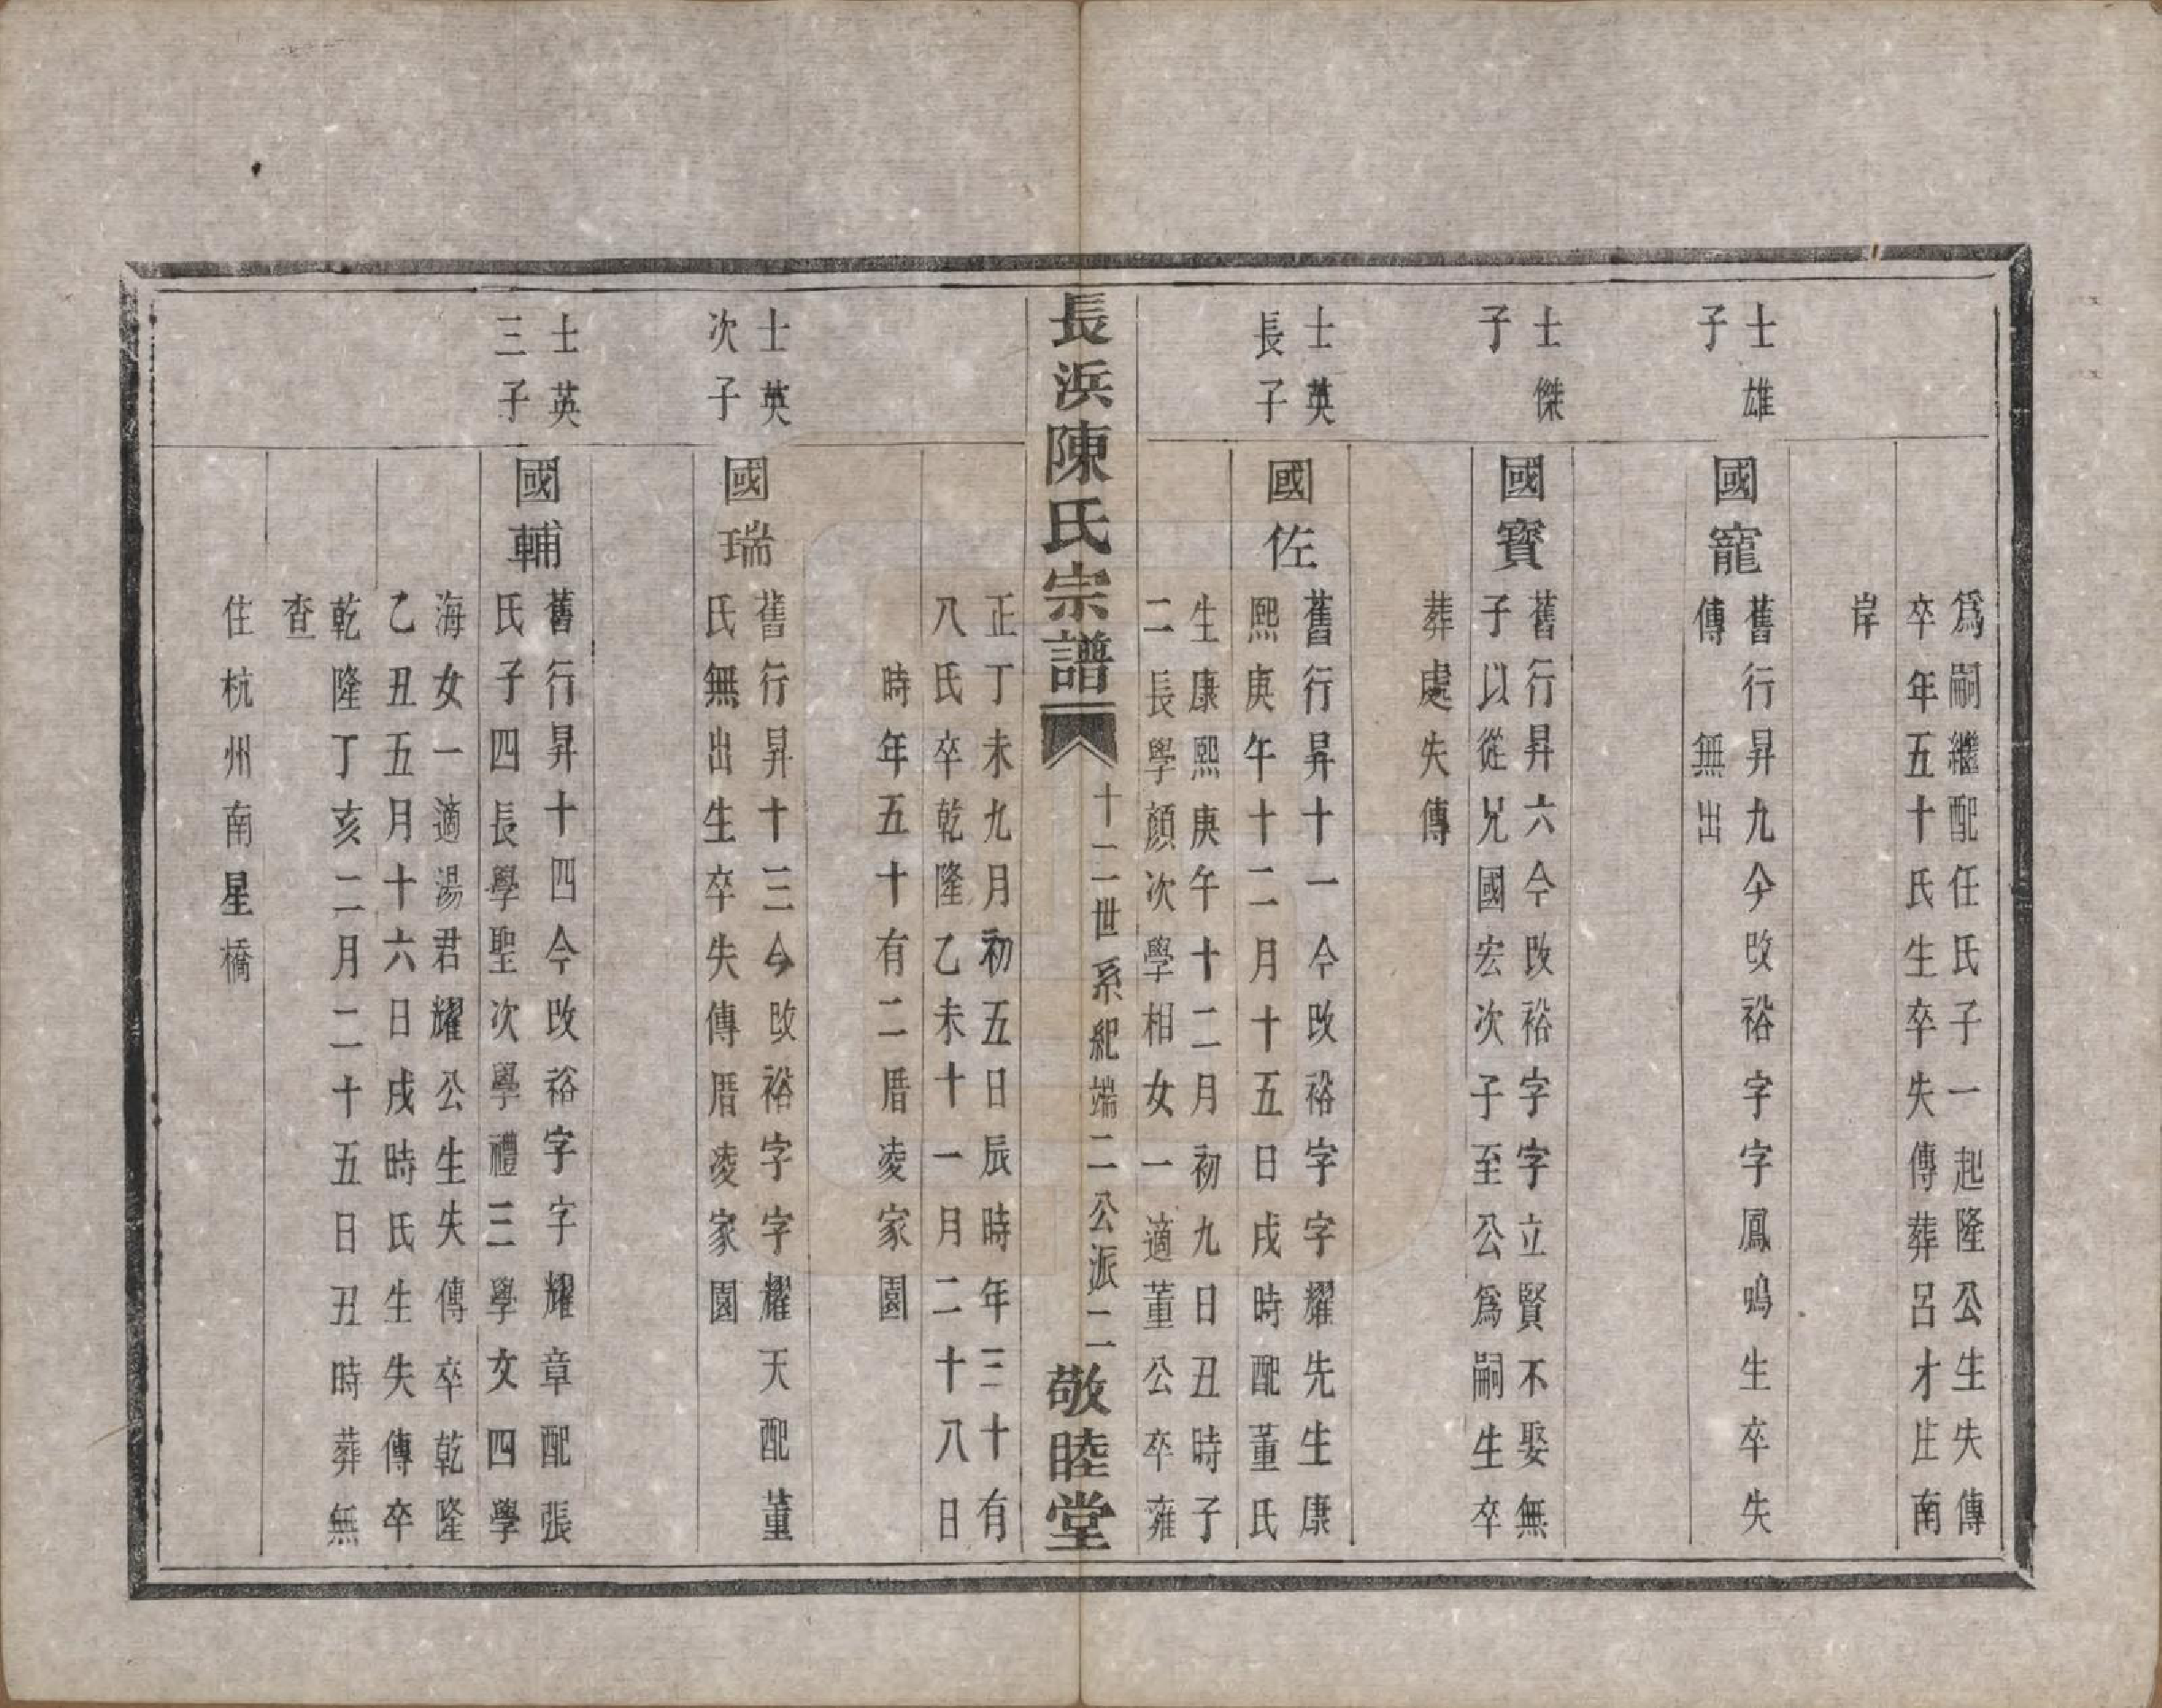 爲嗣繼配任氏子一起隆公生失傳
卒年五十氏生卒失傳葬呂才庄南
岸
士雄
子
國寵
舊行昇九今改裕字字鳳鳴生卒失
傳　無出
士傑
子
國寳
舊行昇六今改裕字字立賢不娶無
子以從兄國宏次子至公爲嗣生卒
葬處失傳
士英
長子
國佐
舊行昇十一今改裕字字耀先生康
熙庚午十二月十五日戌時配董氏
生康熙庚午十二月初九日丑時子
二長學顔次學相女一適董公卒雍
長浜陳氏宗譜
十二世系紀端二公派二
敬睦堂
正丁未九月初五日辰時年三十有
八氏卒乾隆乙未十一月二十八日
時年五十有二厝凌家園
士英
次子
國瑞
舊行昇十三今改裕字字耀天配董
氏無出生卒失傳厝凌家園
士英
三子
國輔
舊行昇十四今改裕字字耀章配張
氏子四長學聖次學禮三學文四學
海女一適湯君耀公生失傳卒乾隆
乙丑五月十六日戌時氏生失傳卒
乾隆丁亥二月二十五日丑時葬無
查
住杭州南星橋